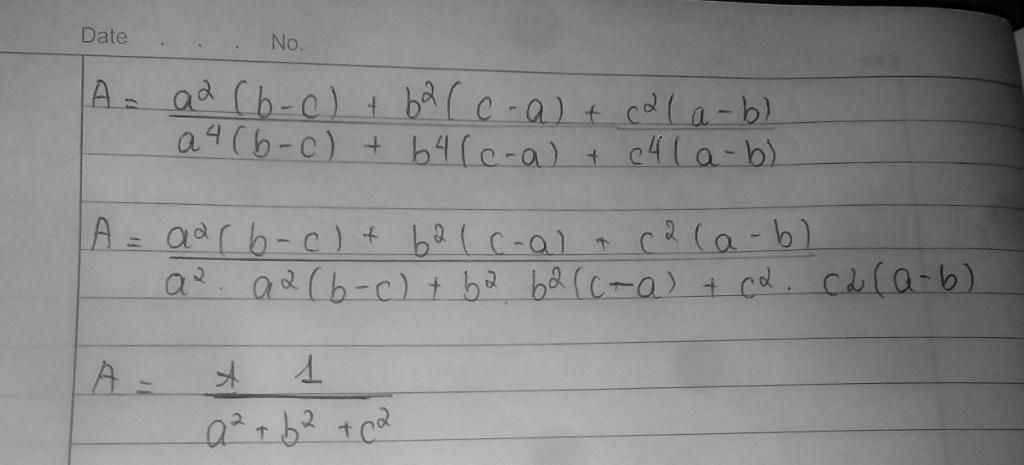 Date . . . No.
A = a² (b-c) + b² (c-a) + c² (a-b)
a⁴ (b-c) + b⁴ (c-a) + c⁴ (a-b)
A = a² (b-c) + b² (c-a) + c² (a-b)
a² . a² (b-c) + b² . b² (c-a) + c² . c² (a-b)
A = 1
a² + b² + c²